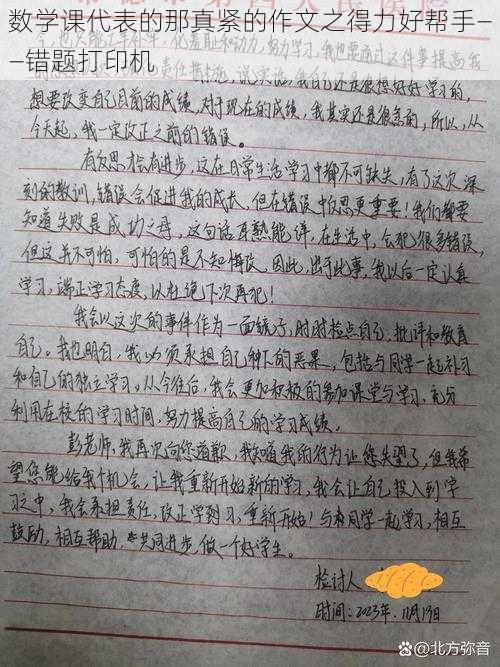 数学课代表的那真紧的作文之得力好帮手—
—错题打印机
想要改变自己目前的成绩,对于现在的成绩,我其实还是很急的,所以,从
今天起,我一定改正之前的错误。
有反思才有进步,这在日常生活学习中都不可缺失,有了这次深
刻的教训,错误会促进我的成长,但在错误中反思更重要!我们都要
知道失败是成功之母,这句话耳熟能详,在生活中,会犯很多错误,
但这并不可怕,可怕的是不知悔改。因此,出于此事,我以后一定认真
学习,端正学习态度,以杜绝下次再犯!
我会以这次的事件作为一面镜子,时时检点自己,批评和教育
自己。我也明白,我必须承担自己种下的恶果,包括与同学一起补习
和自己的独立学习。从今往后,我会更加积极的参加课堂与学习,充分
利用在校的学习时间,努力提高自己的学习成绩。
彭老师,我再次向您道歉,我知道我的行为让您失望了,但我希
望您能给我个机会,让我重新开始新的学习,我会让自己投入到学
习之中,我会承担责任,改正学习,重新开始!与同学一起学习,相互
鼓励,相互帮助,共同进步,做一个好学生。
检讨人
时间:2023年.11月13日
@北方弥音